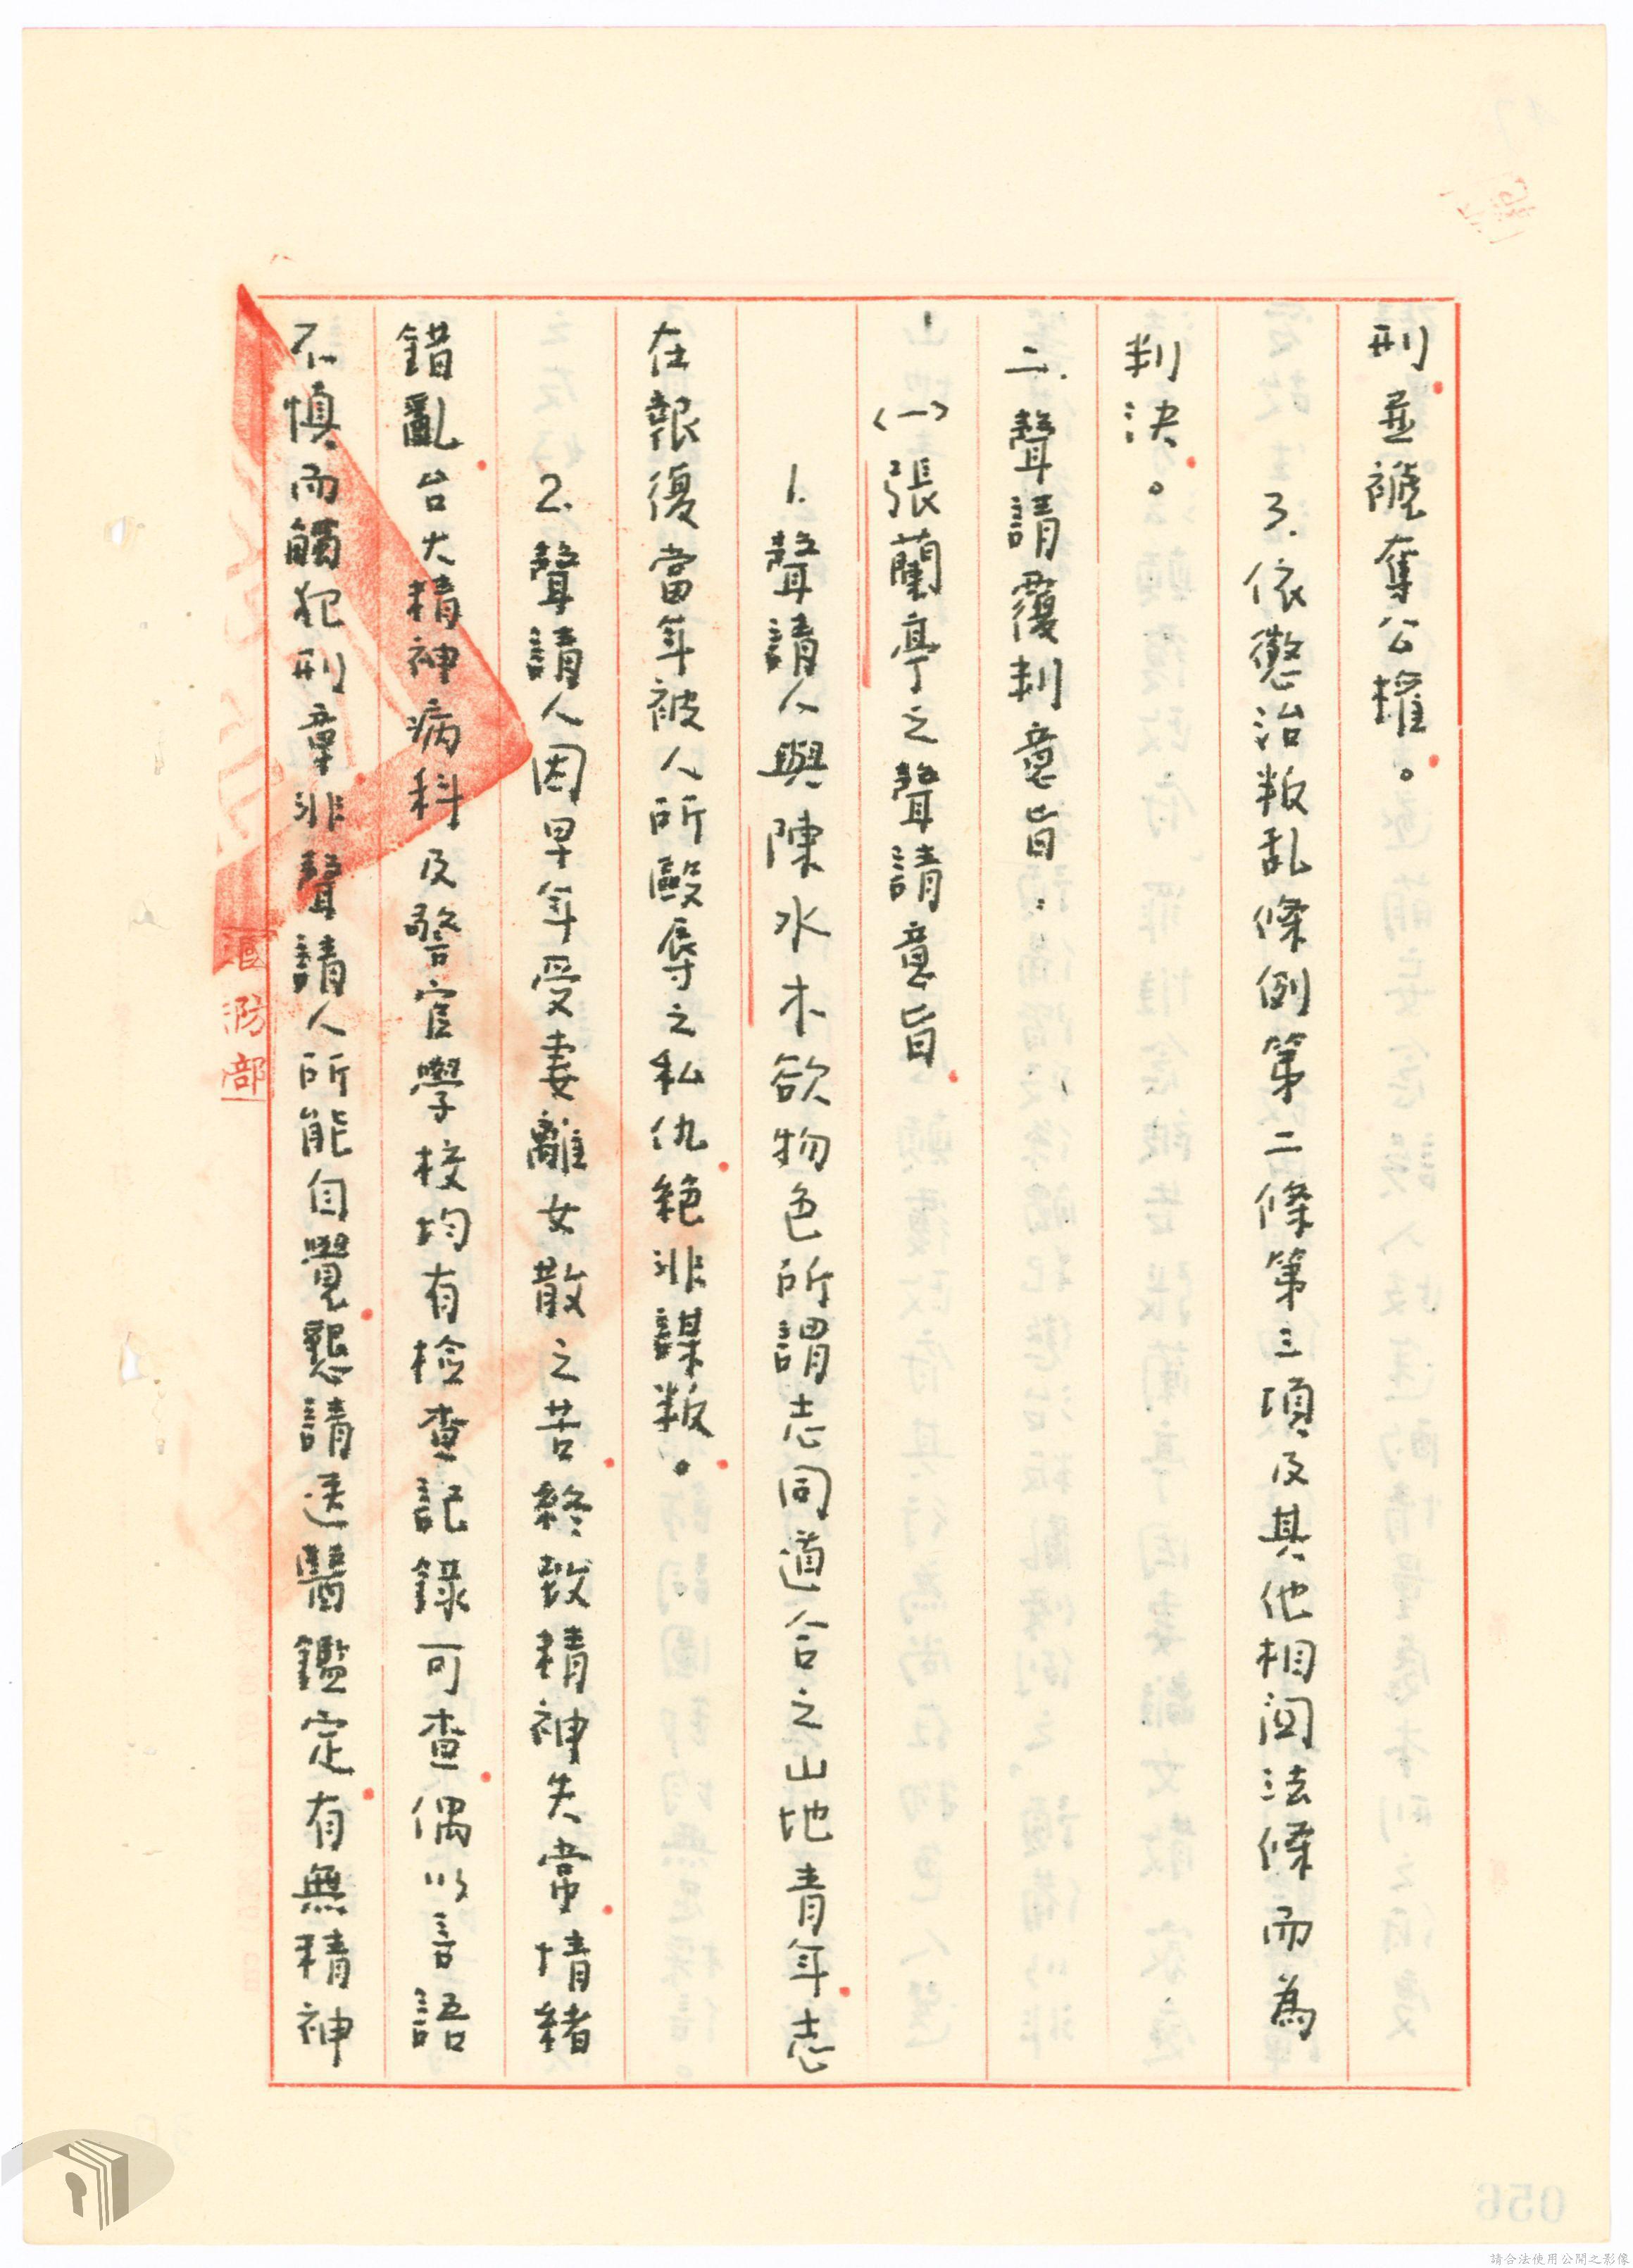 刑並褫奪公權。
3.依懲治叛乱條例第二條第三項及其他相関法條而為
判決。
二.聲請覆判意旨:
(一)張蘭亭之聲請意旨
1.聲請人與陳水木欲物色所謂志同道合之山地青年志
在報復當年被人所毆辱之私仇絶非謀叛。
2.聲請人因早年受妻離女散之苦終致精神失常情緒
錯亂台大精神病科及警官學校均有檢查記錄可查偶以言語
不慎而觸犯刑章非聲請人所能自覺懇請送醫鑑定有無精神
國防部
056
請合法使用公開之影像